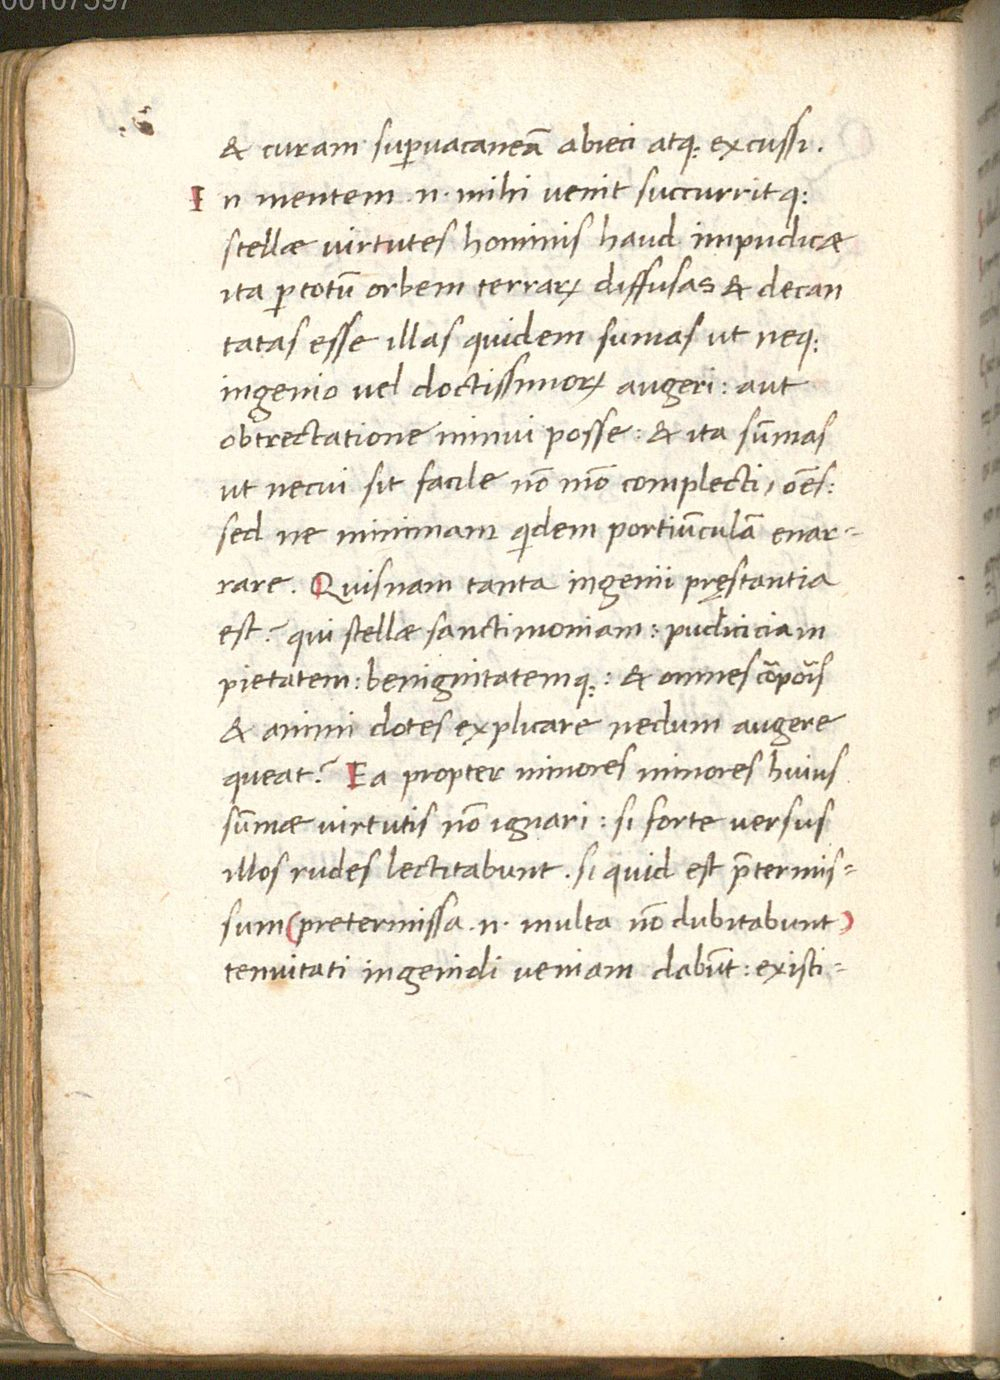 & curam suꝑvacaneā abieci atq; excussi.
In mentem .n. mihi venit succurritq;
stellæ virtutes hominis haud impudicæ
ita ꝑ totū orbem terrarꝝ diffusas & decan
tatas esse illas quidem sumas ut neq;
ingenio vel doctissimorꝝ augeri: aut
obtrectatione minui posse: & ita sūmas
ut necui sit facile nō mō complecti, oēs:
sed ne minimam qidem portiūculā enar-
rare. Quisnam tanta ingenii pręstantia
est? qui stellæ sanctimoniam: pudiciciam
pietatem: benignitatemq;: & omnes cōpoīs
& animi dotes explicare nedum augere
queat? Ea propter minores minores huius
sūmæ virtutis nō ignari: si forte versus
illos rudes lectitabunt. si quid est p̄termis-
sum (pretermissa .n. multa nō dubitabunt)
tenuitati ingenioli veniam dabūt: existi-